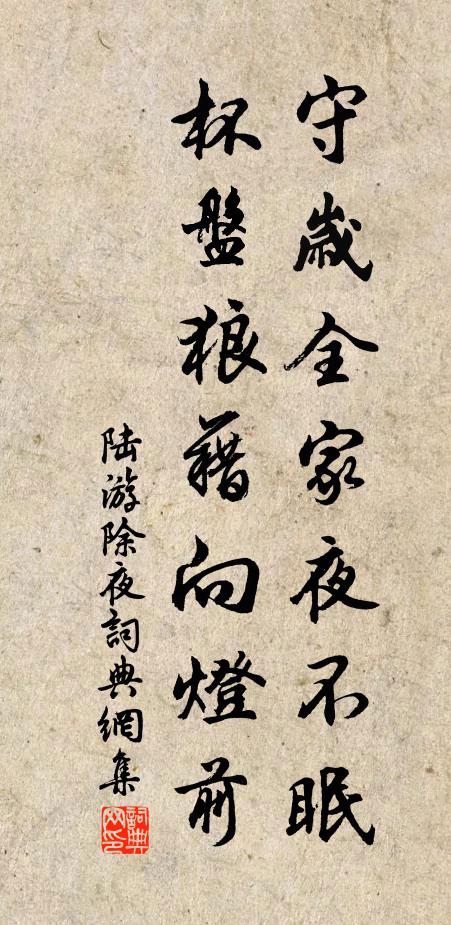 守歲全家夜不眠
杯盤狼藉向燈前
陆游除夜詞典網集
詞典網印